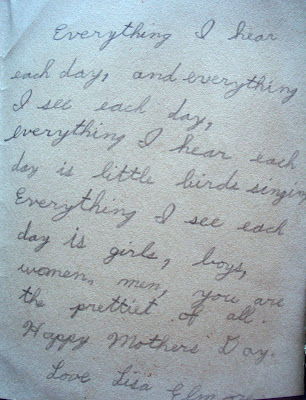 Everything I hear
each day, and everything
I see each day,
everything I hear each
day is little birds singing
Everything I see each
day is girls, boys,
women, men, you are
the prettiet of all.
Happy Mothers Day.
Love Lisa